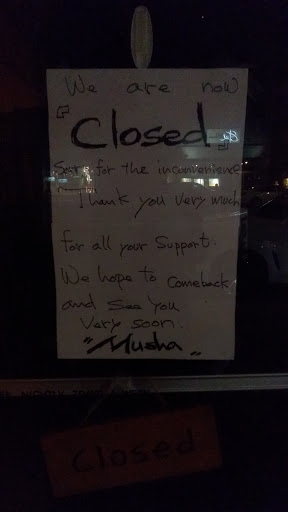 We are now
『Closed』
Sorry for the inconvenience
Thank you very much
for all your Support.
We hope to comeback
and see you
very soon.
"Musha"
Closed